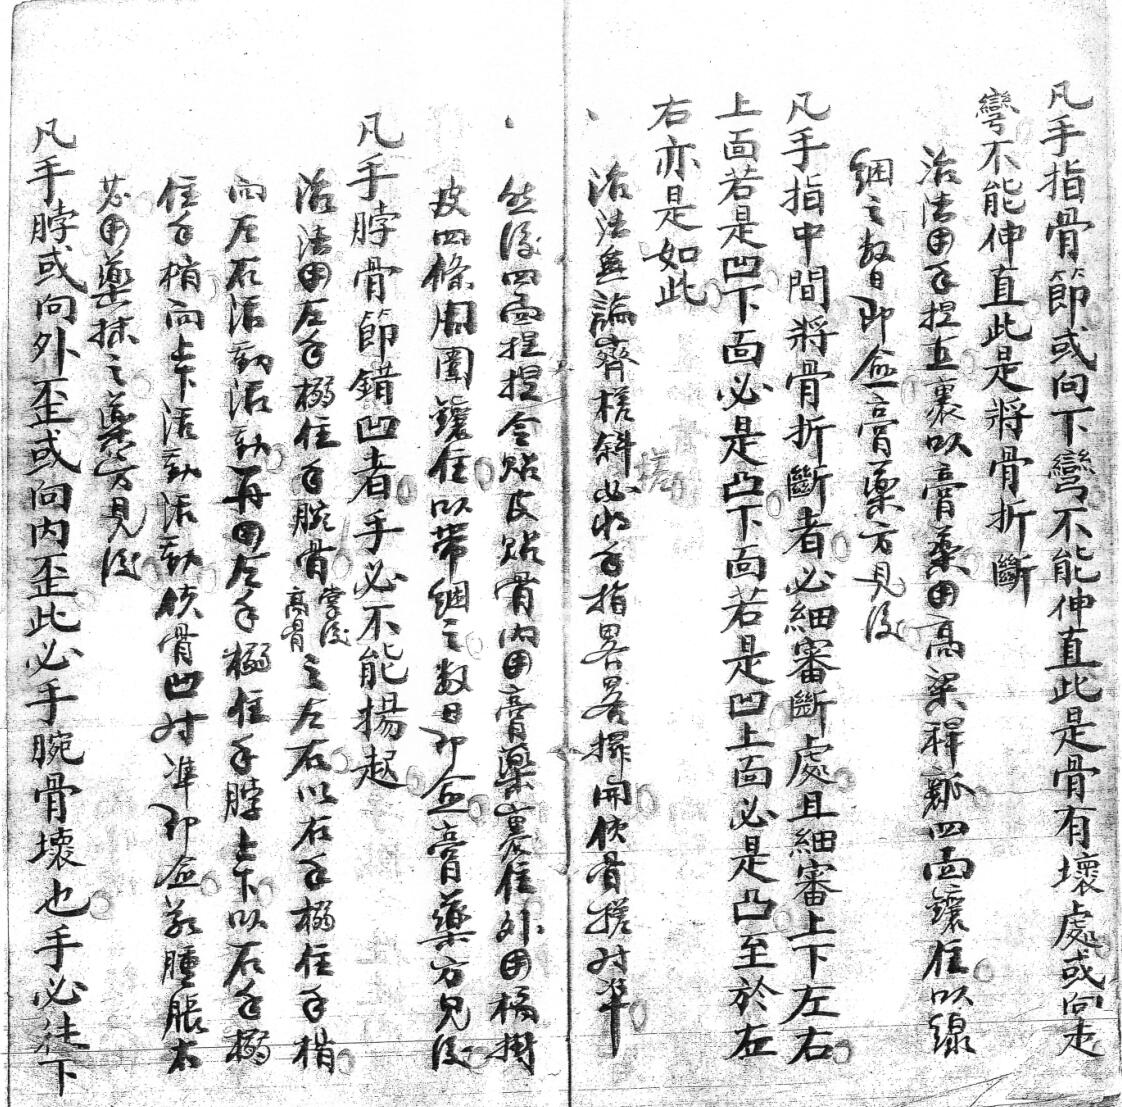 凡手指骨節或向下彎不能伸直此是骨有壞處或向走
彎不能伸直此是將骨折斷
治法用手捏直裹以膏藥用高粱稈瓤四面鑲住以線
綑之数日即愈膏藥方見後
凡手指中間將骨折斷者必細審斷處且細審上下左右
上面若是凹下面必是凸下面若是凹上面必是凸至於左
右亦是如此
治法無論齊槎斜必將手指畧畧摺開使骨搓对準
槎
然後四面捏捏令貼皮貼骨內用膏藥裹住外用楊樹
皮四條周圍鑲住以带綑之数日即愈膏藥方見後
凡手脖骨節錯凹者手必不能揚起
治法用左手搦住手腕骨掌後高骨之左右以右手搦住手梢
向左右活動活動再用左手搦住手脖上下以右手搦
住手梢向上下活動活動使骨凹对準即愈若腫脹太
甚用藥抹之藥方見後
凡手脖或向外歪或向內歪此必手腕骨壞也手必往下